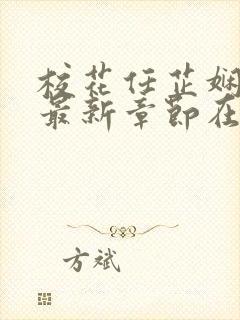 校花任芷娴
最新章节在
方斌